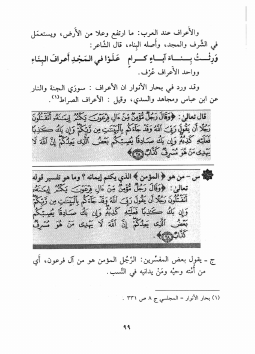 والأعراف عند العرب: ما ارتفع وعلا من الأرض، ويستعمل
في الشرف والمجد، وأصله البناء، قال الشاعر:
ورثت بناء آباء كرام علوا في المجد أعراف البناء
وواحد الأعراف عُرْف.
وقد ورد في بحار الأنوار ان الأعراف : سورٌ بين الجنة والنار
عن ابن عباس ومجاهد والسدي، وقيل : الأعراف الصراط(١).
قال تعالى: ﴿وَقَالَ رَجُلٌ مُّؤْمِنٌ مِّنْ ءَالِ فِرْعَوْنَ يَكْتُمُ إِيمَانَهُ أَتَقْتُلُونَ
رَجُلًا أَن يَقُولَ رَبِّيَ اللَّهُ وَقَدْ جَاءَكُم بِالْبَيِّنَاتِ مِن رَّبِّكُمْ وَإِن يَكُ كَاذِبًا
فَعَلَيْهِ كَذِبُهُ وَإِن يَكُ صَادِقًا يُصِبْكُم بَعْضُ الَّذِي يَعِدُكُمْ إِنَّ اللَّهَ لَا
يَهْدِي مَنْ هُوَ مُسْرِفٌ كَذَّابٌ﴾
س - من هو ﴿المؤمن﴾ الذي يكتم إيمانه ؟ وما هو تفسير قوله
تعالى: ﴿وَقَالَ رَجُلٌ مُّؤْمِنٌ مِّنْ ءَالِ فِرْعَوْنَ يَكْتُمُ إِيمَانَهُ
أَتَقْتُلُونَ رَجُلًا أَن يَقُولَ رَبِّيَ اللَّهُ وَقَدْ جَاءَكُم بِالْبَيِّنَاتِ مِن رَّبِّكُمْ
وَإِن يَكُ كَاذِبًا فَعَلَيْهِ كَذِبُهُ وَإِن يَكُ صَادِقًا يُصِبْكُم
بَعْضُ الَّذِي يَعِدُكُمْ إِنَّ اللَّهَ لَا يَهْدِي مَنْ هُوَ مُسْرِفٌ
كَذَّابٌ﴾
ج - يقول بعض المفسرين: الرجل المؤمن هو من آل فرعون، أي
من أمته وحيّه ومن يدانيه في النسب.
(١) بحار الأنوار - المجلسي ج ٨ ص ٣٣١ .
٩٩